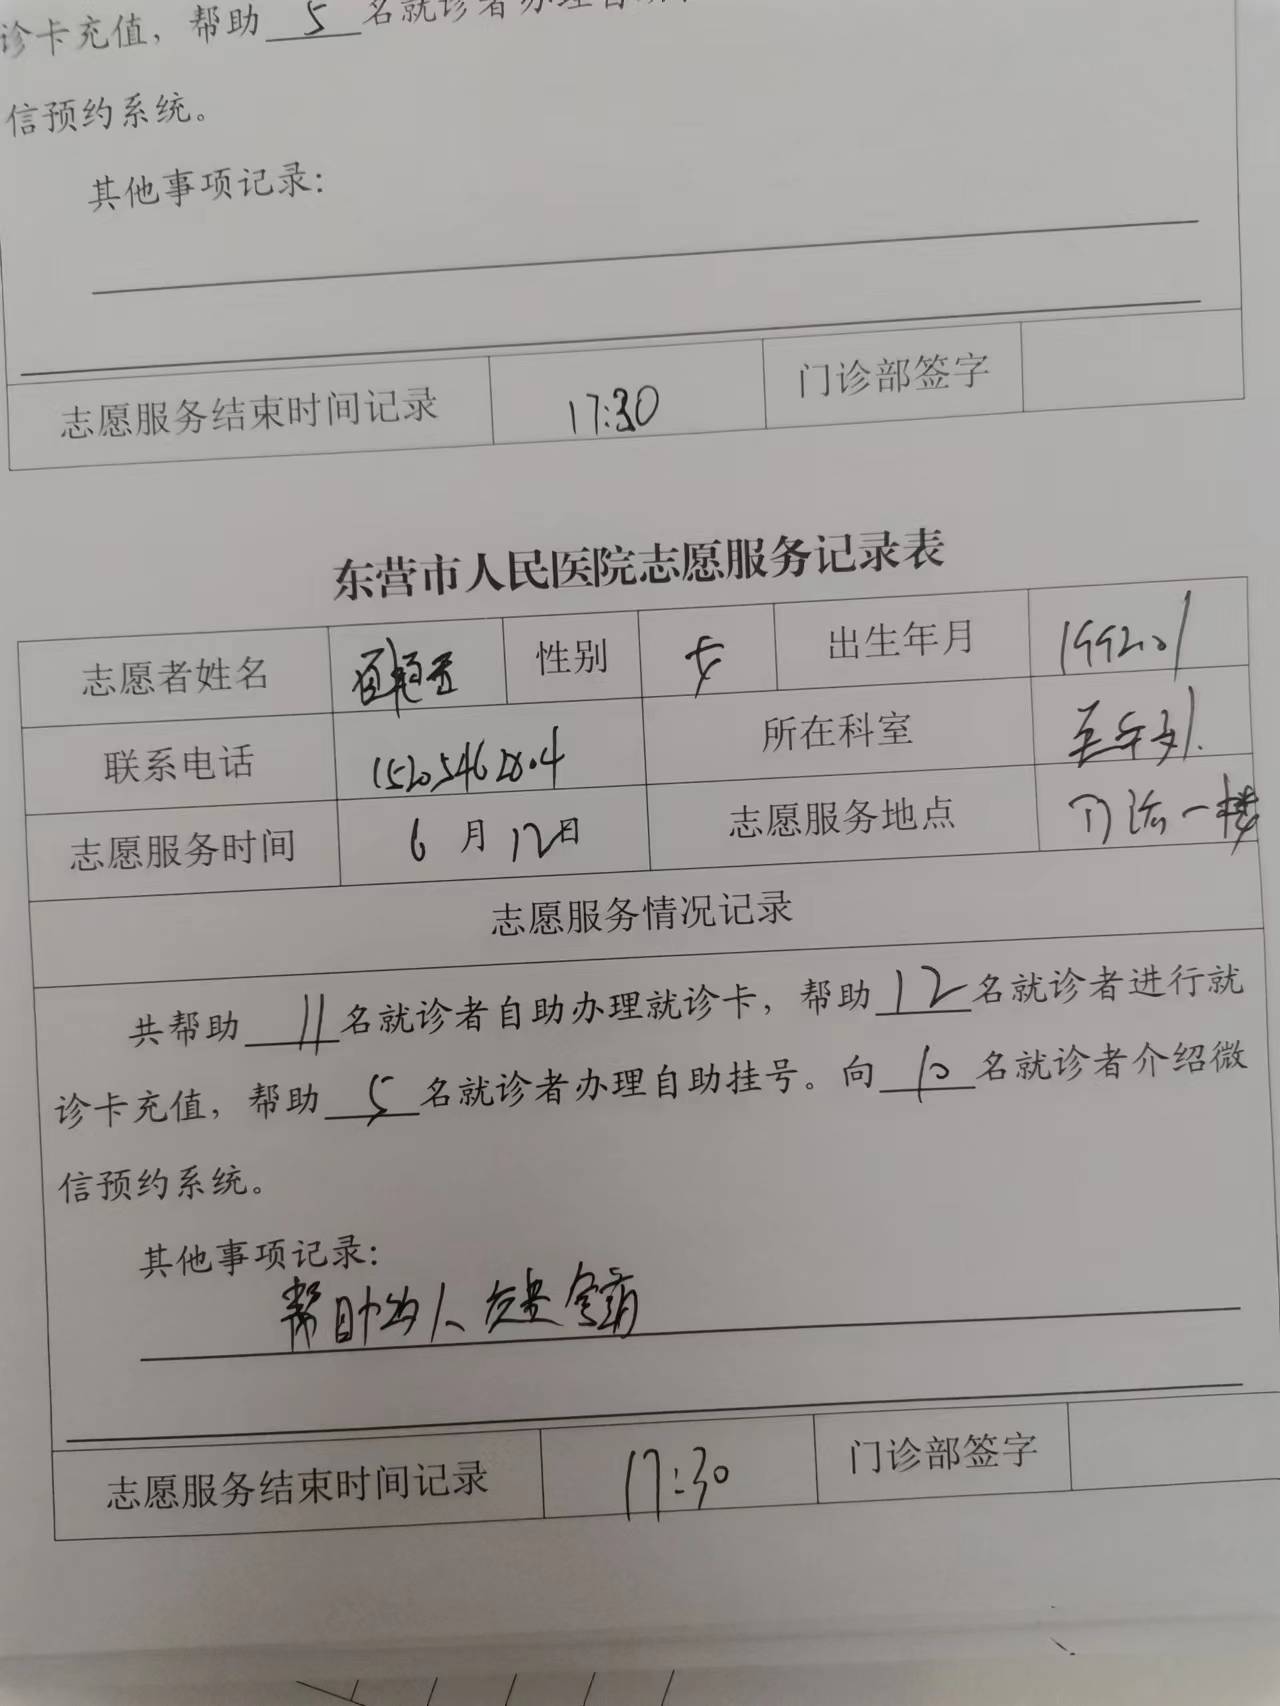 诊卡充值，帮助 5 名就诊者办理自助
信预约系统。
其他事项记录：
志愿服务结束时间记录 17:30 门诊部签字
东营市人民医院志愿服务记录表
志愿者姓名 性别 女 出生年月 199201
联系电话 15205462804 所在科室
志愿服务时间 6月12日 志愿服务地点 门诊一楼
志愿服务情况记录
共帮助 11 名就诊者自助办理就诊卡，帮助 12 名就诊者进行就
诊卡充值，帮助 5 名就诊者办理自助挂号。向 10 名就诊者介绍微
信预约系统。
其他事项记录：
帮助老人
志愿服务结束时间记录 17:30 门诊部签字